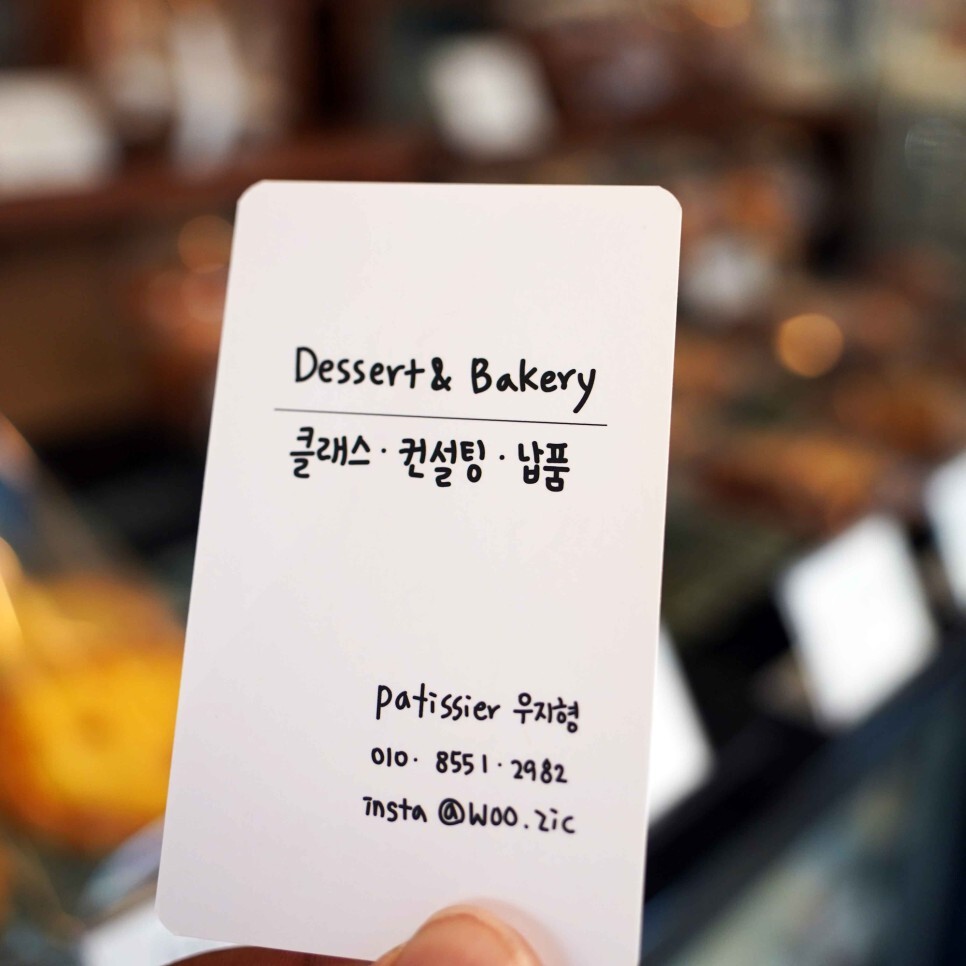 Dessert & Bakery
클래스 · 컨설팅 · 납품
patissier 우지형
010 · 8551 · 2982
insta @woo.zic